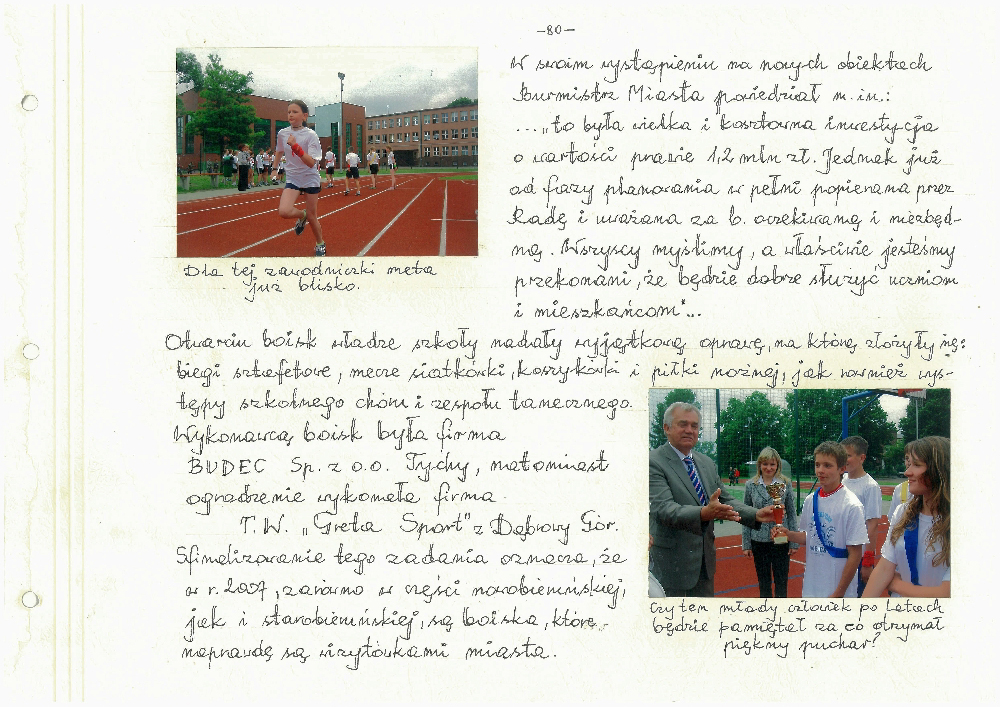 -80-
W swoim wystąpieniu na nowych obiektach
Burmistrz Miasta powiedział m.in.:
...„to była wielka i kosztowna inwestycja
o wartości prawie 1,2 mln zł. Jednak już
od fazy planowania w pełni popierana przez
Radę i uważana za b. oczekiwaną i niezbęd-
ną. Wszyscy myślimy, a właściwie jesteśmy
przekonani, że będzie dobrze służyć uczniom
i mieszkańcom"...
Dla tej zawodniczki meta
już blisko.
Otwarciu boisk władze szkoły nadały wyjątkową oprawę, na którą złożyły się:
biegi sztafetowe, mecze siatkówki, koszykówki i piłki nożnej, jak również wys-
tępy szkolnego chóru i zespołu tanecznego.
Wykonawcą boisk była firma
BUDEC Sp. z o.o. Tychy, natomiast
ogrodzenie wykonała firma
T.W. „Greta Sport" z Dąbrowy Gór.
Sfinalizowanie tego zadania oznacza, że
w r. 2007, zarówno w części nowobieruńskiej,
jak i starobieruńskiej, są boiska, które
naprawdę są wizytówkami miasta.
Czy ten młody człowiek po latach
będzie pamiętał za co otrzymał
piękny puchar?